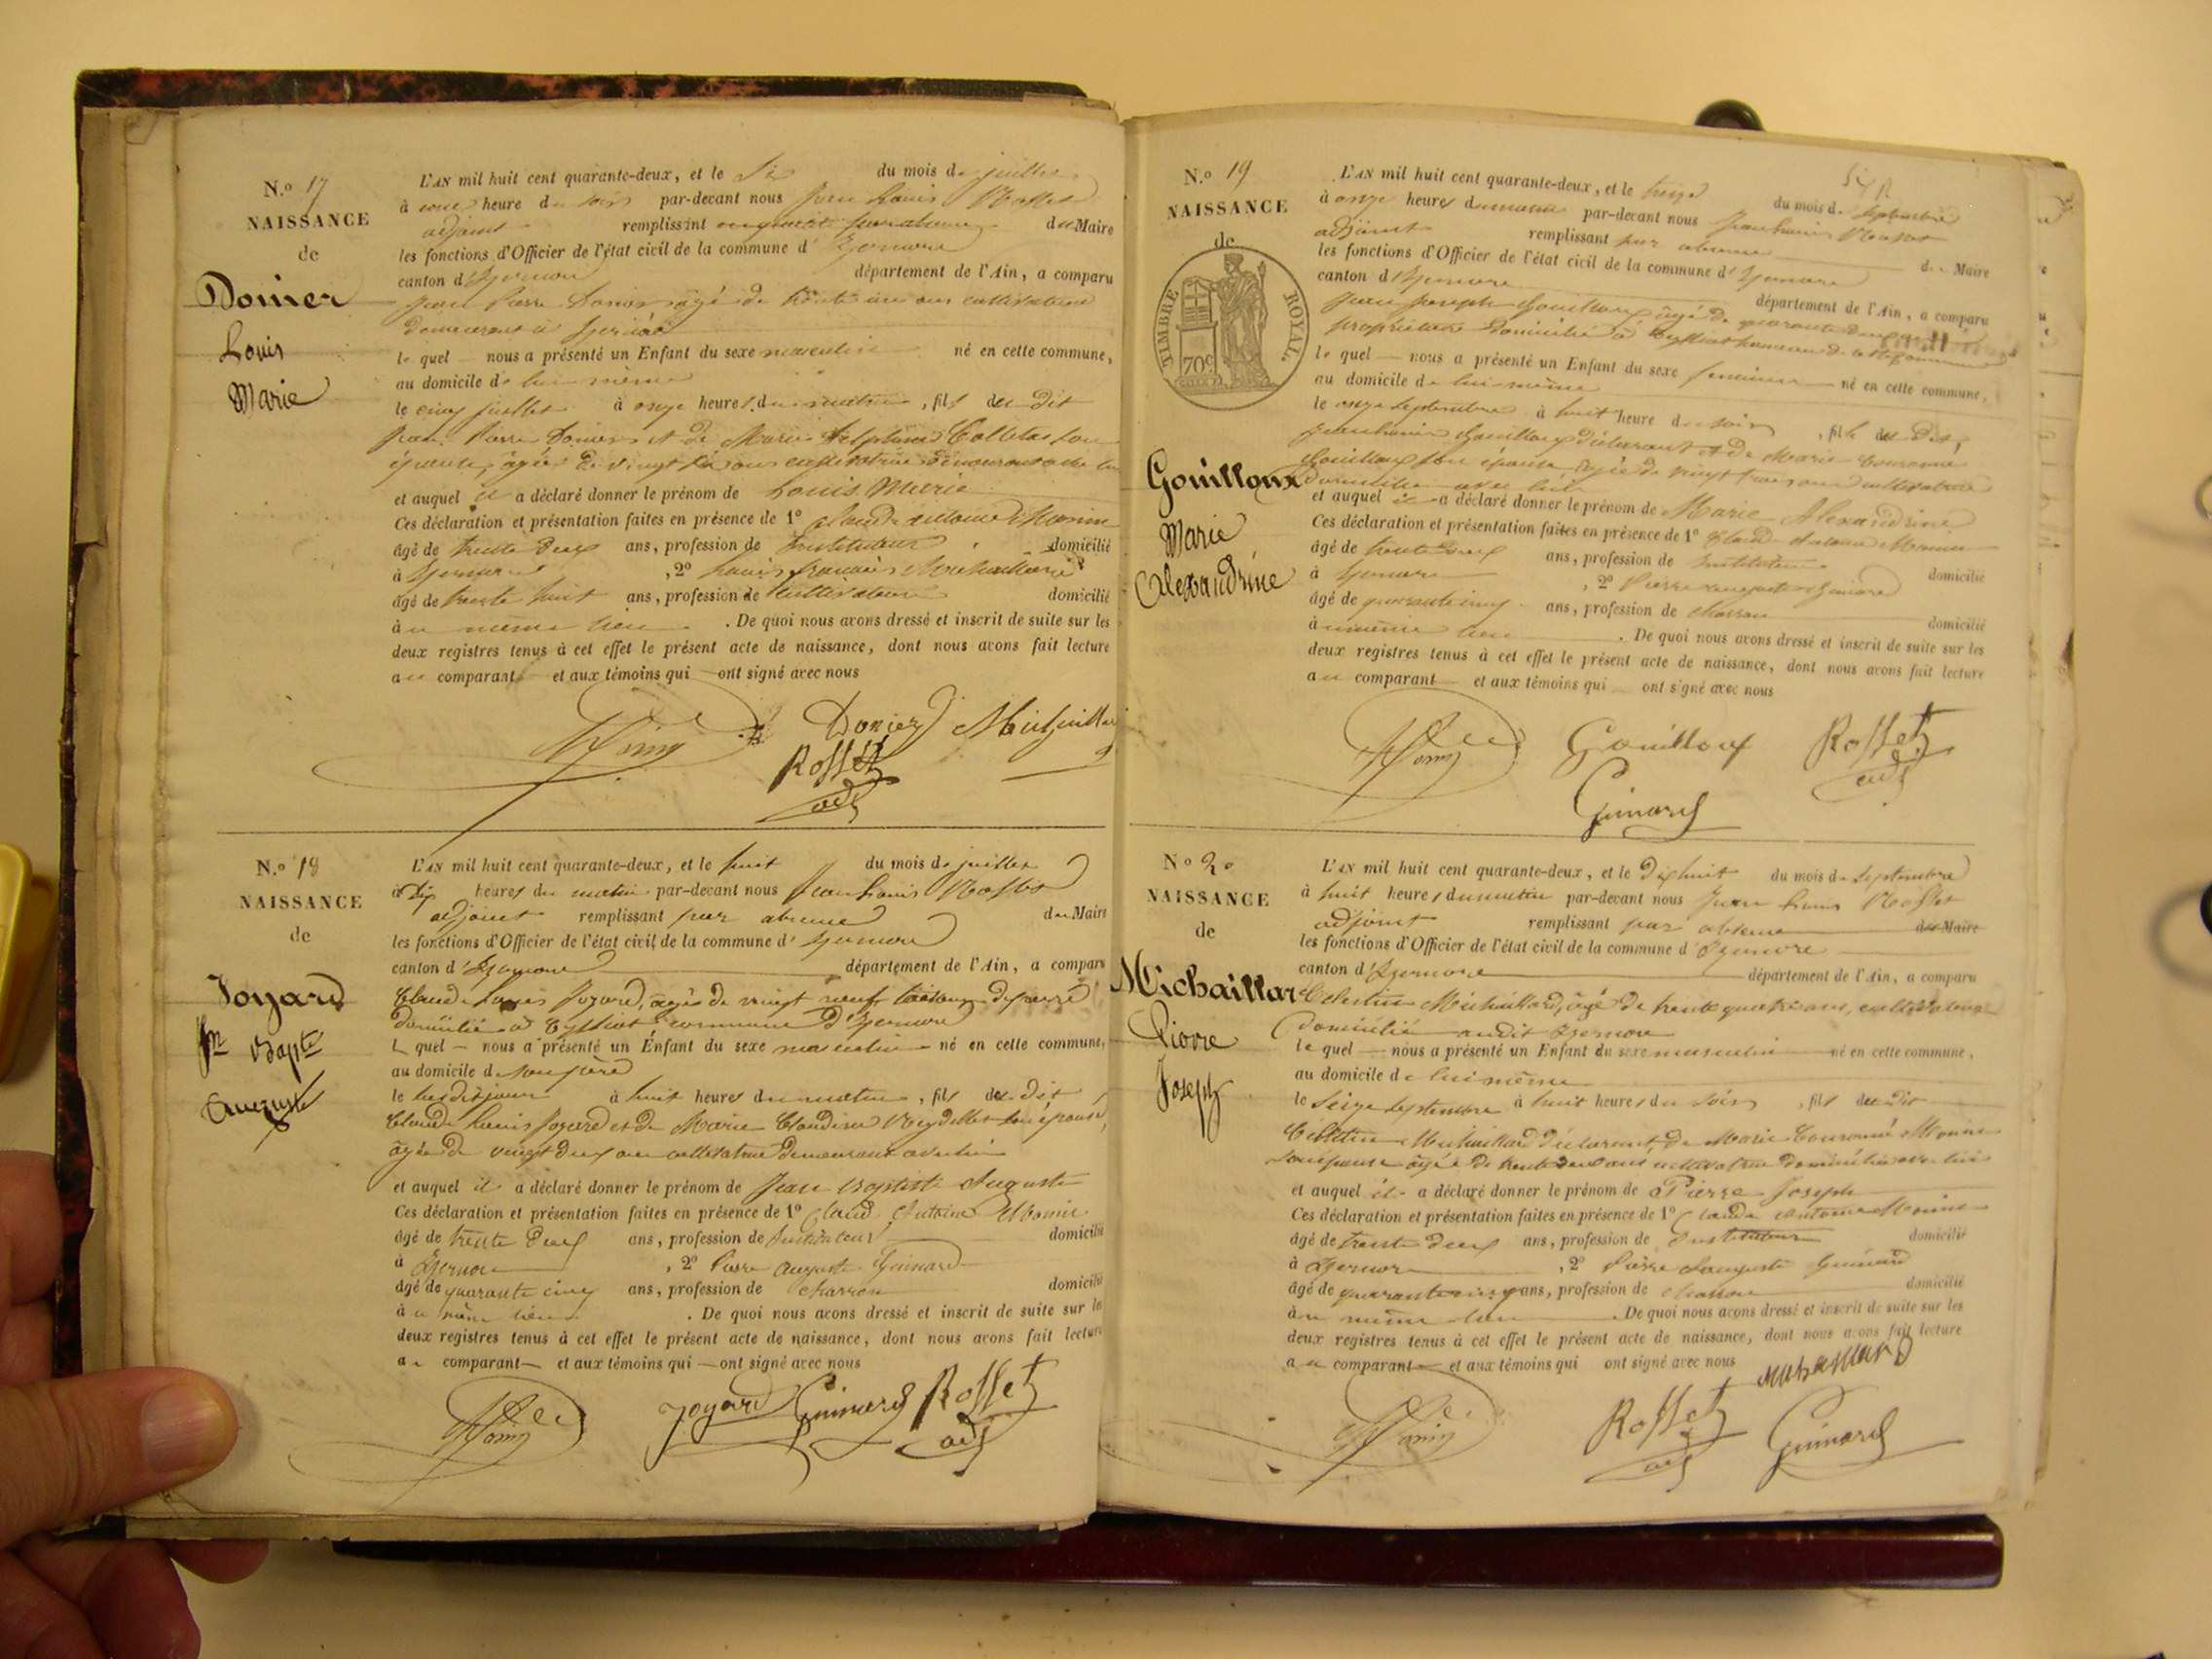 N.º 17
NAISSANCE
de
Donier
Louis
Marie
L'AN mil huit cent quarante-deux, et le Six du mois de juillet
à une heure du soir par-devant nous Jean Louis Rosset
adjoint remplissant du Maire
les fonctions d'Officier de l'état civil de la commune d'Izernore
canton d'Izernore département de l'Ain, a comparu
Jean Pierre Donier âgé de trente un ans cultivateur
demeurant à Izernore
le quel nous a présenté un Enfant du sexe masculin né en cette commune,
au domicile de lui même
le cinq juillet à onze heures du matin, fils du dit
Jean Pierre Donier et de Marie Delphine Colletas son
épouse, âgée de vingt six ans cultivatrice demeurant avec lui
et auquel il a déclaré donner le prénom de Louis Marie
Ces déclaration et présentation faites en présence de 1º Claude Antoine Monin
âgé de trente deux ans, profession de Instituteur domicilié
à Izernore, 2º Louis François Michaillard
âgé de trente huit ans, profession de cultivateur domicilié
à u même lieu. De quoi nous avons dressé et inscrit de suite sur les
deux registres tenus à cet effet le présent acte de naissance, dont nous avons fait lecture
au comparant et aux témoins qui ont signé avec nous
Monin Donier Michaillard
Rosset
adj
N.º 18
NAISSANCE
de
Joyard
Jn Bapte
Auguste
L'AN mil huit cent quarante-deux, et le huit du mois de juillet
à dix heures du matin par-devant nous Jean Louis Rosset
adjoint remplissant par absence du Maire
les fonctions d'Officier de l'état civil de la commune d'Izernore
canton d'Izernore département de l'Ain, a comparu
Claude Louis Joyard, âgé de vingt neuf
domicilié à Eyssiat commune d'Izernore
le quel nous a présenté un Enfant du sexe masculin né en cette commune,
au domicile de son père
le susdit jour à huit heures du matin, fils du dit
Claude Louis Joyard et de Marie Claudine Reydellet son épouse,
âgée de vingt deux ans cultivatrice demeurant avec lui
et auquel il a déclaré donner le prénom de Jean Baptiste Auguste
Ces déclaration et présentation faites en présence de 1º Claude Antoine Monin
âgé de trente deux ans, profession de Instituteur domicilié
à Izernore, 2º Pierre Auguste Guinard
âgé de quarante cinq ans, profession de charron domicilié
à u même lieu. De quoi nous avons dressé et inscrit de suite sur les
deux registres tenus à cet effet le présent acte de naissance, dont nous avons fait lecture
au comparant et aux témoins qui ont signé avec nous
Monin Joyard Guinard Rosset
adj
N.º 19
NAISSANCE
de
TIMBRE ROYAL
70 c
Gouilloux
Marie
Alexandrine
L'AN mil huit cent quarante-deux, et le treize du mois de Septembre
à onze heures du matin par-devant nous Jean Louis Rosset
adjoint remplissant par absence du Maire
les fonctions d'Officier de l'état civil de la commune d'Izernore
canton d'Izernore département de l'Ain, a comparu
Jean Joseph Gouilloux âgé de quarante deux
propriétaire domicilié à Eyssiat hameau de cette commune
le quel nous a présenté un Enfant du sexe féminin né en cette commune,
au domicile de lui-même
le onze septembre à huit heure du soir, fille du dit,
Gouilloux déclarant et de Marie Couronne
Gouilloux son épouse, âgée de vingt trois ans cultivatrice
domiciliée avec lui
et auquel il a déclaré donner le prénom de Marie Alexandrine
Ces déclaration et présentation faites en présence de 1º Claude Antoine Monin
âgé de trente deux ans, profession de Instituteur domicilié
à Izernore, 2º Pierre Auguste Guinard
âgé de quarante cinq ans, profession de charron domicilié
à u même lieu. De quoi nous avons dressé et inscrit de suite sur les
deux registres tenus à cet effet le présent acte de naissance, dont nous avons fait lecture
au comparant et aux témoins qui ont signé avec nous
Monin Gouilloux Rosset
adj
Guinard
Nº 20
NAISSANCE
de
Michaillard
Pierre
Joseph
L'AN mil huit cent quarante-deux, et le Dix huit du mois de Septembre
à huit heures du matin par-devant nous Jean Louis Rosset
adjoint remplissant par absence du Maire
les fonctions d'Officier de l'état civil de la commune d'Izernore
canton d'Izernore département de l'Ain, a comparu
Célestin Michaillard, âgé de trente quatre ans, cultivateur
domicilié audit Izernore
le quel nous a présenté un Enfant du sexe masculin né en cette commune,
au domicile de lui même
le Seize septembre à huit heures du soir, fils du dit
Célestin Michaillard déclarant de Marie Couronne Monin
son épouse âgée de trente deux ans cultivatrice domiciliée avec lui
et auquel il a déclaré donner le prénom de Pierre Joseph
Ces déclaration et présentation faites en présence de 1º Claude Antoine Monin
âgé de trente deux ans, profession de Instituteur domicilié
à Izernore, 2º Pierre Auguste Guinard
âgé de quarante cinq ans, profession de charron domicilié
à u même lieu. De quoi nous avons dressé et inscrit de suite sur les
deux registres tenus à cet effet le présent acte de naissance, dont nous avons fait lecture
au comparant et aux témoins qui ont signé avec nous
Michaillard
Monin Rosset Guinard
adj